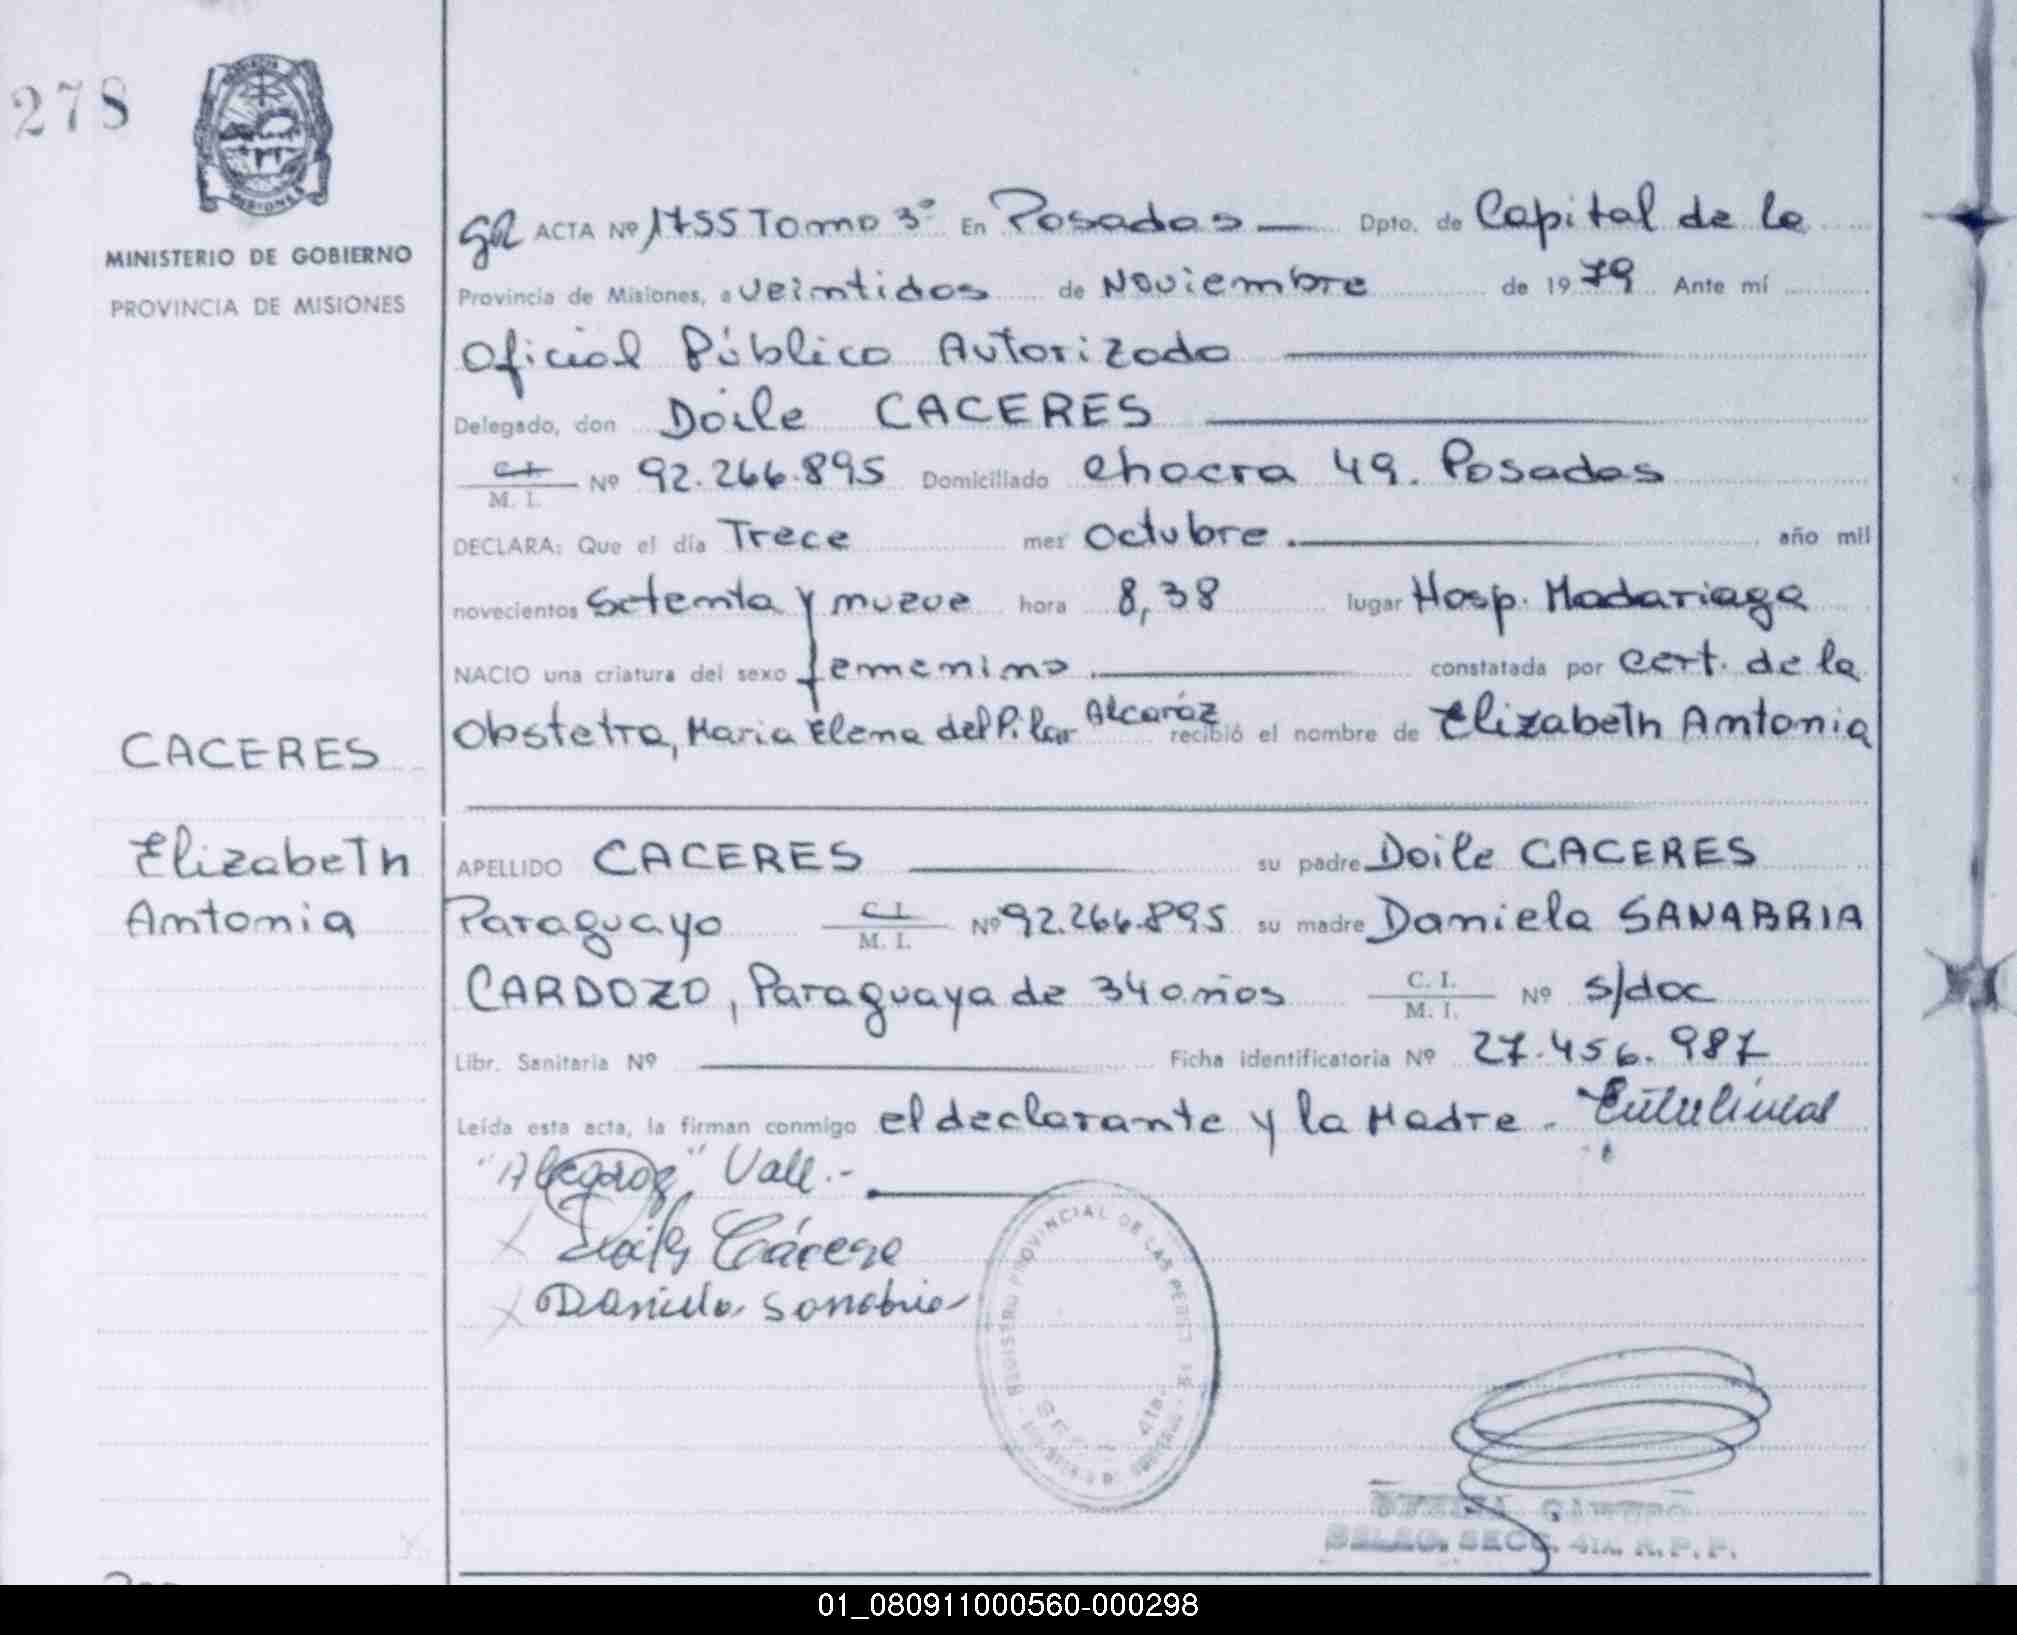 278
MINISTERIO DE GOBIERNO
PROVINCIA DE MISIONES
ACTA Nº 1755 Tomo 3º En Posadas Dpto. de Capital de la
Provincia de Misiones, a veintidos de Noviembre de 1979 Ante mí
Oficial Público Autorizado
Delegado, don Doile CACERES
C.I. M. I. Nº 92.266.895 Domiciliado chacra 49. Posadas
DECLARA: Que el día Trece mes Octubre año mil
novecientos setenta y nueve hora 8,38 lugar Hosp. Madariaga
NACIO una criatura del sexo femenino constatada por cert. de la
Obstetra, Maria Elena del Pilar Alcaráz recibió el nombre de Elizabeth Antonia
CACERES
Elizabeth
Antonia
APELLIDO CACERES su padre Doile CACERES
Paraguayo C.I. M. I. Nº 92.266.895 su madre Daniela SANABRIA
CARDOZO, Paraguaya de 34 años C. I. M. I. Nº s/doc
Libr. Sanitaria Nº Ficha identificatoria Nº 27.456.987
Leída esta acta, la firman conmigo el declarante y la Madre.
Vall.-
Cácere
Daniela Sanabria
REGISTRO PROVINCIAL DE LAS
4ta.
DELEG. SECC. 4ta. R. P. P.
01_080911000560-000298